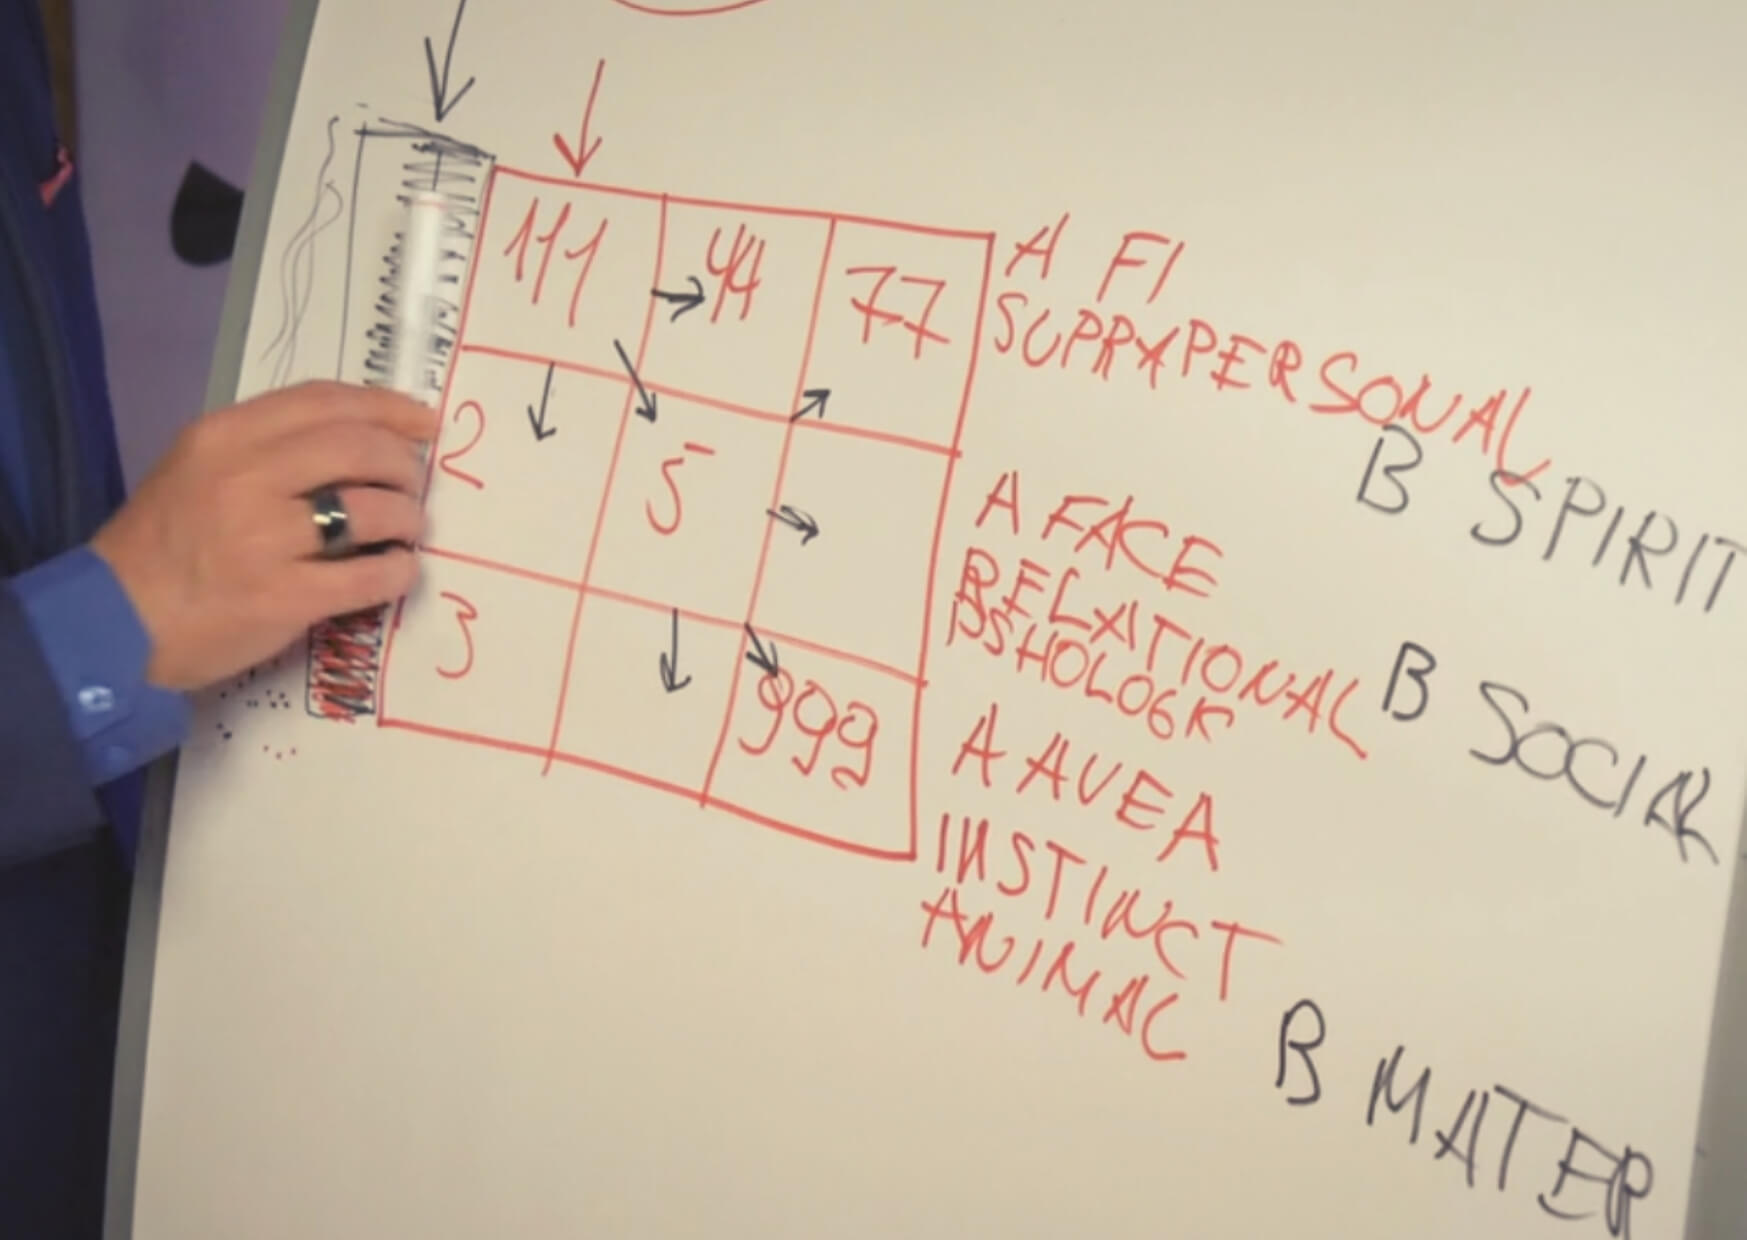 111 44 77
2 5
3 999
A FI
SUPRAPERSONAL
B SPIRIT
A FACE
RELATIONAL
PSHOLOGIC
B SOCIAL
A AVEA
INSTINCT
ANIMAL
B MATER